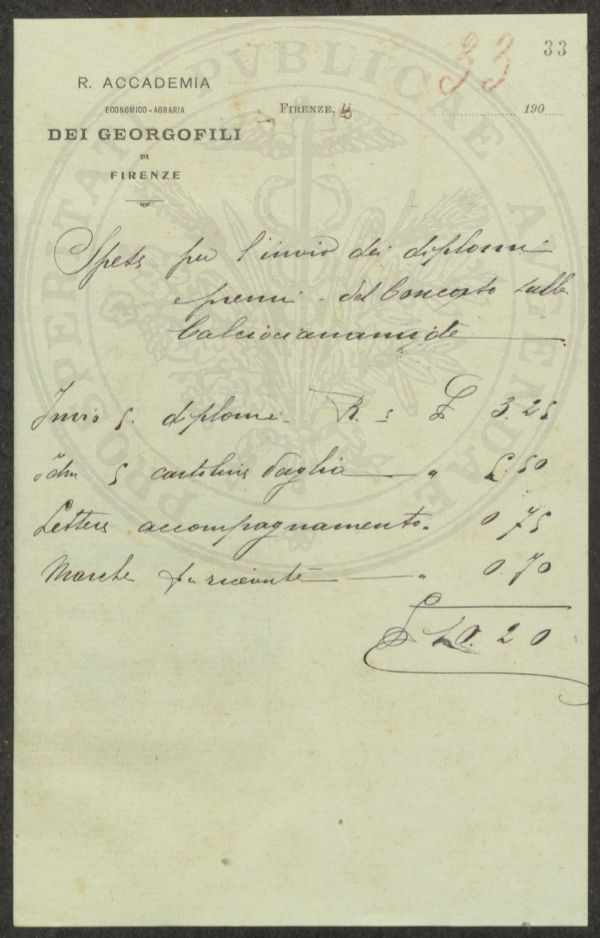 33
33
R. ACCADEMIA
ECONOMICO-AGRARIA
DEI GEORGOFILI
DI
FIRENZE
FIRENZE, li 190
PROSPERITATI PVBLICAE AVGENDAE
Spese per l'invio dei diplomi
e premi del Concorso sulla
Calciocianamide
Invio 5. diplomi R. £ 3.25
Idm 5 cartoline Vaglia " 5.50
Lettere accompagnamento " 0.75
Marche per ricevute " 0.70
£ 10.20